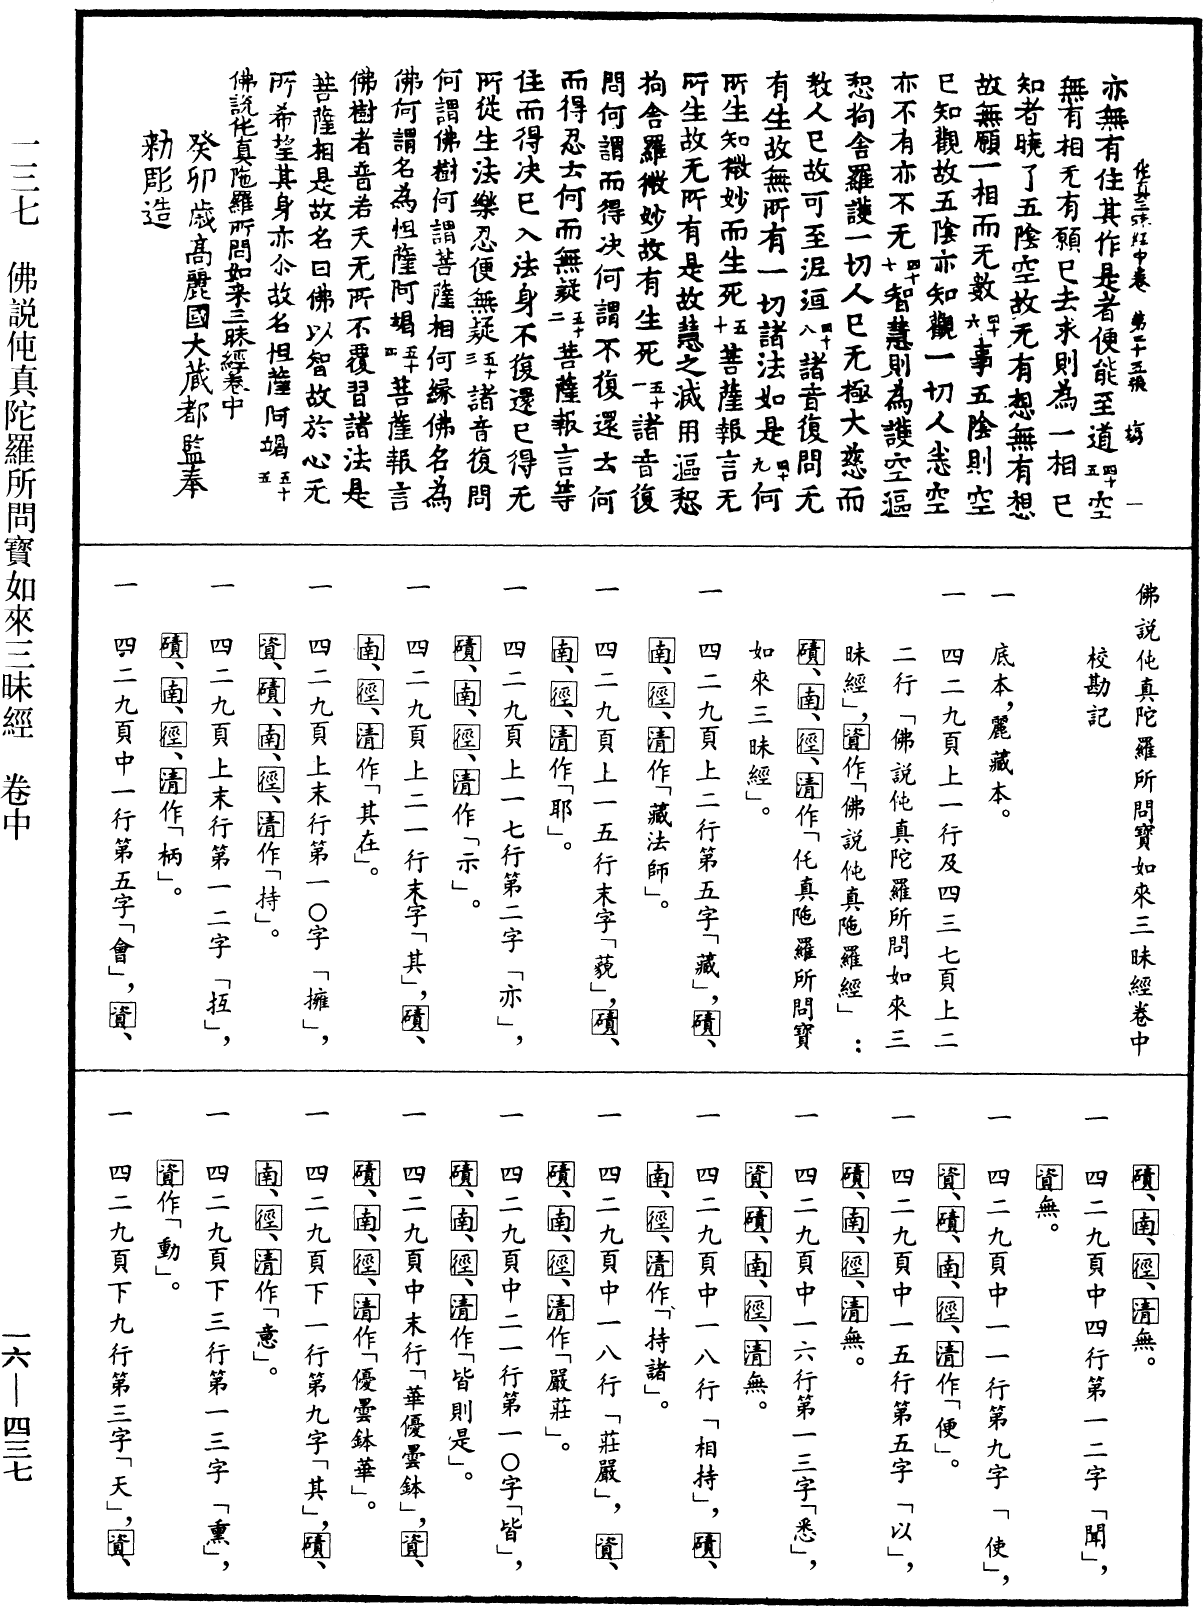 亦無有住其作是者便能至道四十五空
無有相无有願已去求則為一相已
知者曉了五陰空故无有想無有想
故無願一相而无數四十六事五陰則空
已知觀故五陰亦知觀一切人悉空
亦不有亦不无四十七智慧則為護空漚
惒拘舍羅護一切人已无極大慈而
教人已故可至泥洹四十八諸音復問无
有生故無所有一切諸法如是四十九何
所生知微妙而生死五十菩薩報言无
所生故无所有是故慧之減用漚惒
拘舍羅微妙故有生死五十一諸音復
問何謂而得決何謂不復還去何
而得忍去何而無疑五十二菩薩報言等
住而得決已入法身不復還已得无
所從生法樂忍便無疑五十三諸音復問
何謂佛樹何謂菩薩相何緣佛名為
佛何謂名為怛薩阿竭五十四菩薩報言
佛樹者音若天无所不覆習諸法是
菩薩相是故名曰佛以智故於心无
所希望其身亦尒故名怛薩阿竭五十五
佛說伅真陁羅所問如来三昧經卷中
癸卯歲高麗國大藏都監奉
勅彫造
佛說伅真陀羅所問寶如來三昧經卷中
校勘記
一 底本，麗藏本。
一 四二九頁上一行及四三七頁上二
二行「佛說伅真陀羅所問如來三
昧經」，資作「佛說伅真陁羅經」：
磧、南、徑、清作「仛真陁羅所問寶
如來三昧經」。
一 四二九頁上二行第五字「藏」，磧、
南、徑、清作「藏法師」。
一 四二九頁上一五行末字「藐」，磧、
南、徑、清作「耶」。
一 四二九頁上一七行第二字「亦」，
磧、南、徑、清作「示」。
一 四二九頁上二一行末字「其」，磧、
南、徑、清作「其在」。
一 四二九頁上末行第一〇字「擁」，
資、磧、南、徑、清作「持」。
一 四二九頁上末行第一二字「抂」，
磧、南、徑、清作「柄」。
一 四二九頁中一行第五字「會」，資、
磧、南、徑、清無。
一 四二九頁中四行第一二字「聞」，
資無。
一 四二九頁中一一行第九字「使」，
資、磧、南、徑、清作「便」。
一 四二九頁中一五行第五字「以」，
磧、南、徑、清無。
一 四二九頁中一六行第一三字「悉」，
資、磧、南、徑、清無。
一 四二九頁中一八行「相持」，磧、
南、徑、清作「持諸」。
一 四二九頁中一八行「莊嚴」，資、
磧、南、徑、清作「嚴莊」。
一 四二九頁中二一行第一〇字「皆」，
磧、南、徑、清作「皆則是」。
一 四二九頁中末行「華優曇鉢」，資、
磧、南、徑、清作「優曇鉢華」。
一 四二九頁下一行第九字「其」，磧、
南、徑、清作「意」。
一 四二九頁下三行第一三字「熏」，
資作「動」。
一 四二九頁下九行第三字「天」，資、
二三七 佛說伅真陀羅所問寶如來三昧經 卷中
一六—四三七